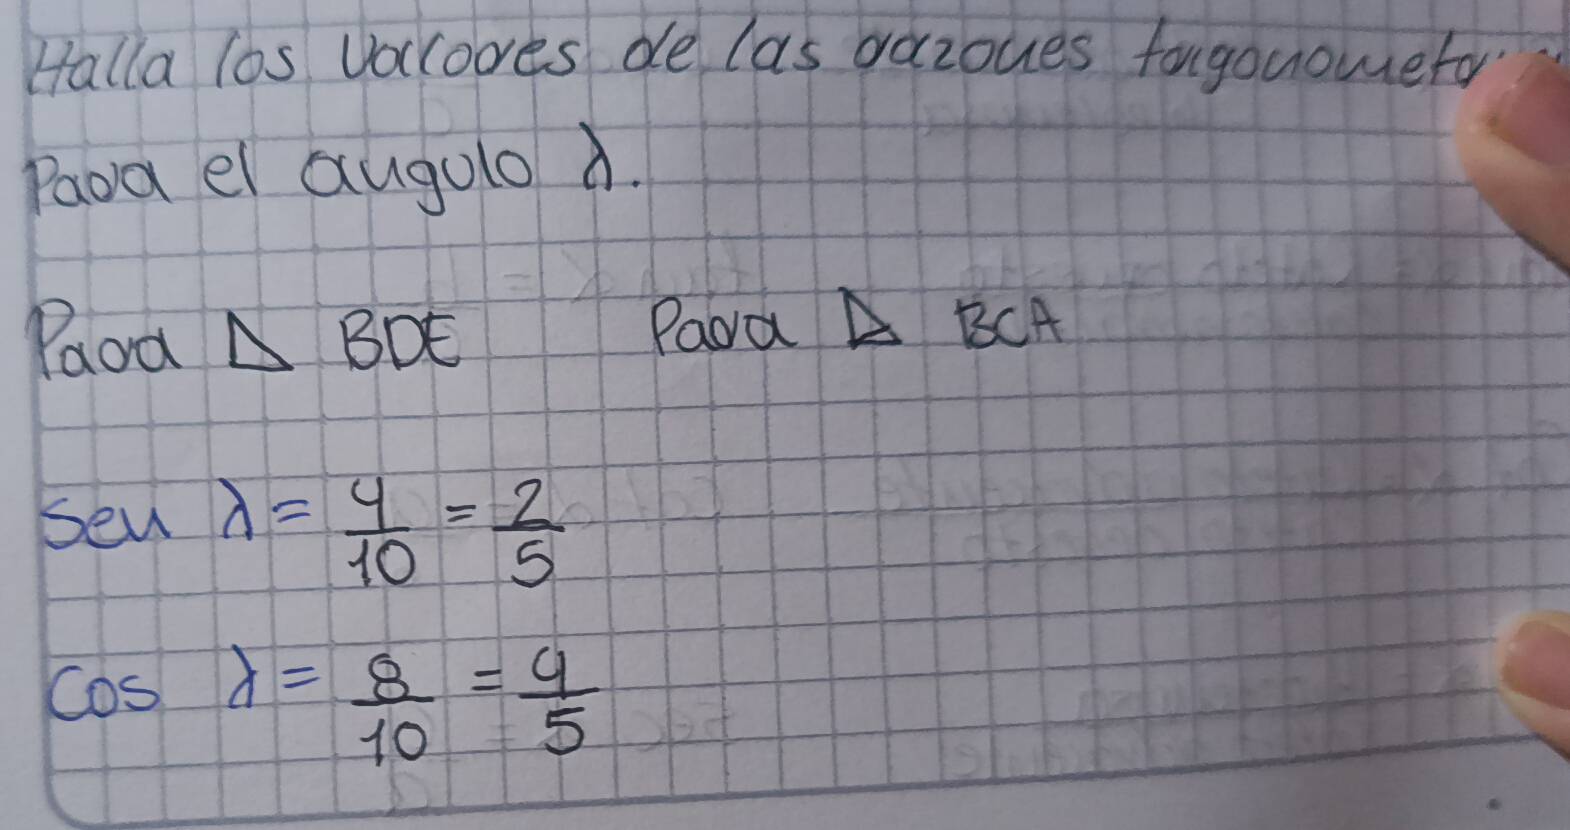 Halla los valores de las razones
Para el angulo λ.
Para △ BDE Para △ BCA
Sen λ = 4/10 = 2/5
Cos λ = 8/10 = 4/5